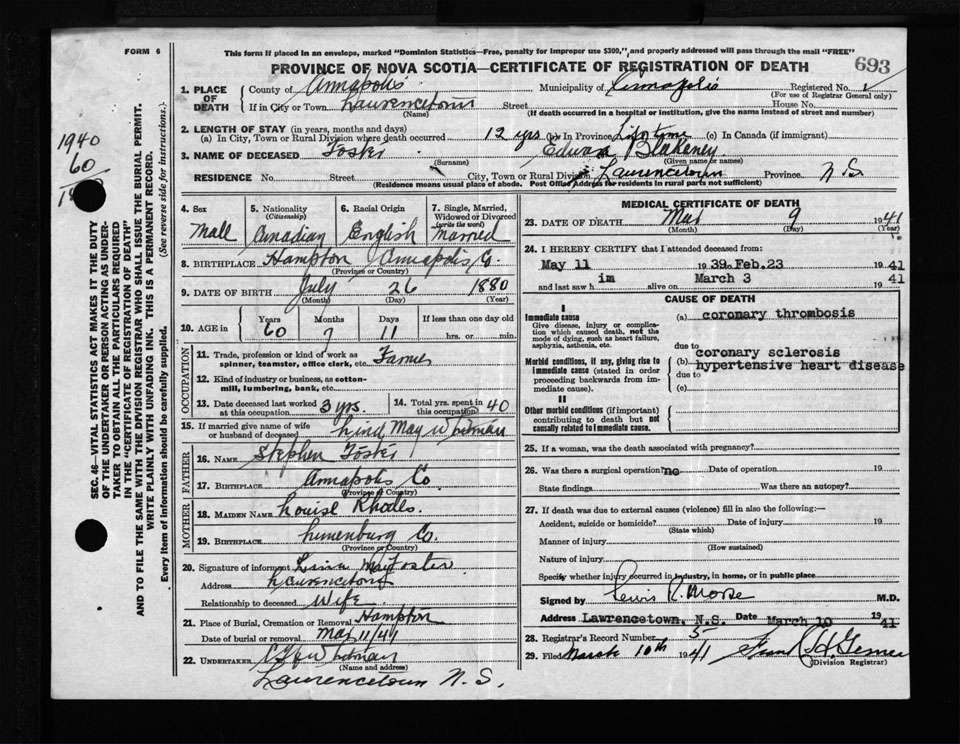 FORM 6
This form if placed in an envelope, marked "Dominion Statistics—Free, penalty for improper use $300," and properly addressed will pass through the mail "FREE"
PROVINCE OF NOVA SCOTIA—CERTIFICATE OF REGISTRATION OF DEATH
693
1. PLACE OF DEATH
County of Annapolis Municipality of Annapolis Registered No.
(For use of Registrar General only)
If in City or Town Laurencetown Street House No.
(Name) (If death occurred in a hospital or institution, give the name instead of street and number)
2. LENGTH OF STAY (in years, months and days)
(a) In City, Town or Rural Division where death occurred 12 yrs (b) In Province Lifetime (c) In Canada (if immigrant)
3. NAME OF DECEASED Foster Edward Blakeney
(Surname) (Given name or names)
RESIDENCE No. Street City, Town or Rural Division Laurencetown Province N S.
(Residence means usual place of abode. Post Office Address for residents in rural parts not sufficient)
1940
60
SEC. 46—VITAL STATISTICS ACT MAKES IT THE DUTY
OF THE UNDERTAKER OR PERSON ACTING AS UNDER-
TAKER TO OBTAIN ALL THE PARTICULARS REQUIRED
IN THE "CERTIFICATE OF REGISTRATION OF DEATH"
AND TO FILE THE SAME WITH THE DIVISION REGISTRAR WHO SHALL ISSUE THE BURIAL PERMIT.
WRITE PLAINLY WITH UNFADING INK. THIS IS A PERMANENT RECORD.
Every item of information should be carefully supplied. (See reverse side for instructions.)
4. Sex Male
5. Nationality (Citizenship) Canadian
6. Racial Origin English
7. Single, Married, Widowed or Divorced (write the word) Married
8. BIRTHPLACE Hampton Annapolis Co.
(Province or Country)
9. DATE OF BIRTH July 26 1880
(Month) (Day) (Year)
10. AGE in Years Months Days If less than one day old
60 7 11 hrs. or min.
OCCUPATION
11. Trade, profession or kind of work as spinner, teamster, office clerk, etc. Farmer
12. Kind of industry or business, as cotton-mill, lumbering, bank, etc.
13. Date deceased last worked at this occupation 3 yrs. 14. Total yrs. spent in this occupation 40
15. If married give name of wife or husband of deceased May Whitman
FATHER
16. NAME Stephen Foster
17. BIRTHPLACE Annapolis Co
(Province or Country)
MOTHER
18. MAIDEN NAME Louise Rhodes.
19. BIRTHPLACE Lunenburg Co.
(Province or Country)
20. Signature of informant May Foster
Address Laurencetown
Relationship to deceased Wife
21. Place of Burial, Cremation or Removal Hampton
Date of burial or removal Mar 11/41
22. UNDERTAKER Whitman
(Name and address)
Laurencetown N. S.
MEDICAL CERTIFICATE OF DEATH
23. DATE OF DEATH Mar 9 1941
(Month) (Day) (Year)
24. I HEREBY CERTIFY that I attended deceased from
May 11 1939 Feb.23 1941
and last saw h im alive on March 3 1941
CAUSE OF DEATH
I
Immediate cause
Give disease, injury or complication which caused death, not the mode of dying, such as heart failure, asphyxia, asthenia, etc.
(a) coronary thrombosis
due to
Morbid conditions, if any, giving rise to immediate cause (stated in order proceeding backwards from immediate cause).
(b) coronary sclerosis
hypertensive heart disease
due to
(c)
II
Other morbid conditions (if important) contributing to death but not causally related to immediate cause.
25. If a woman, was the death associated with pregnancy?
26. Was there a surgical operation? no Date of operation 19
State findings Was there an autopsy?
27. If death was due to external causes (violence) fill in also the following:—
Accident, suicide or homicide? Date of injury 19
(State which)
Manner of injury
(How sustained)
Nature of injury
Specify whether injury occurred in industry, in home, or in public place
Signed by Lewis R. Morse M.D.
Address Lawrencetown, N.S. Date March 10 1941
28. Registrar's Record Number 5
29. Filed March 10th 1941 Frank H.
(Division Registrar)